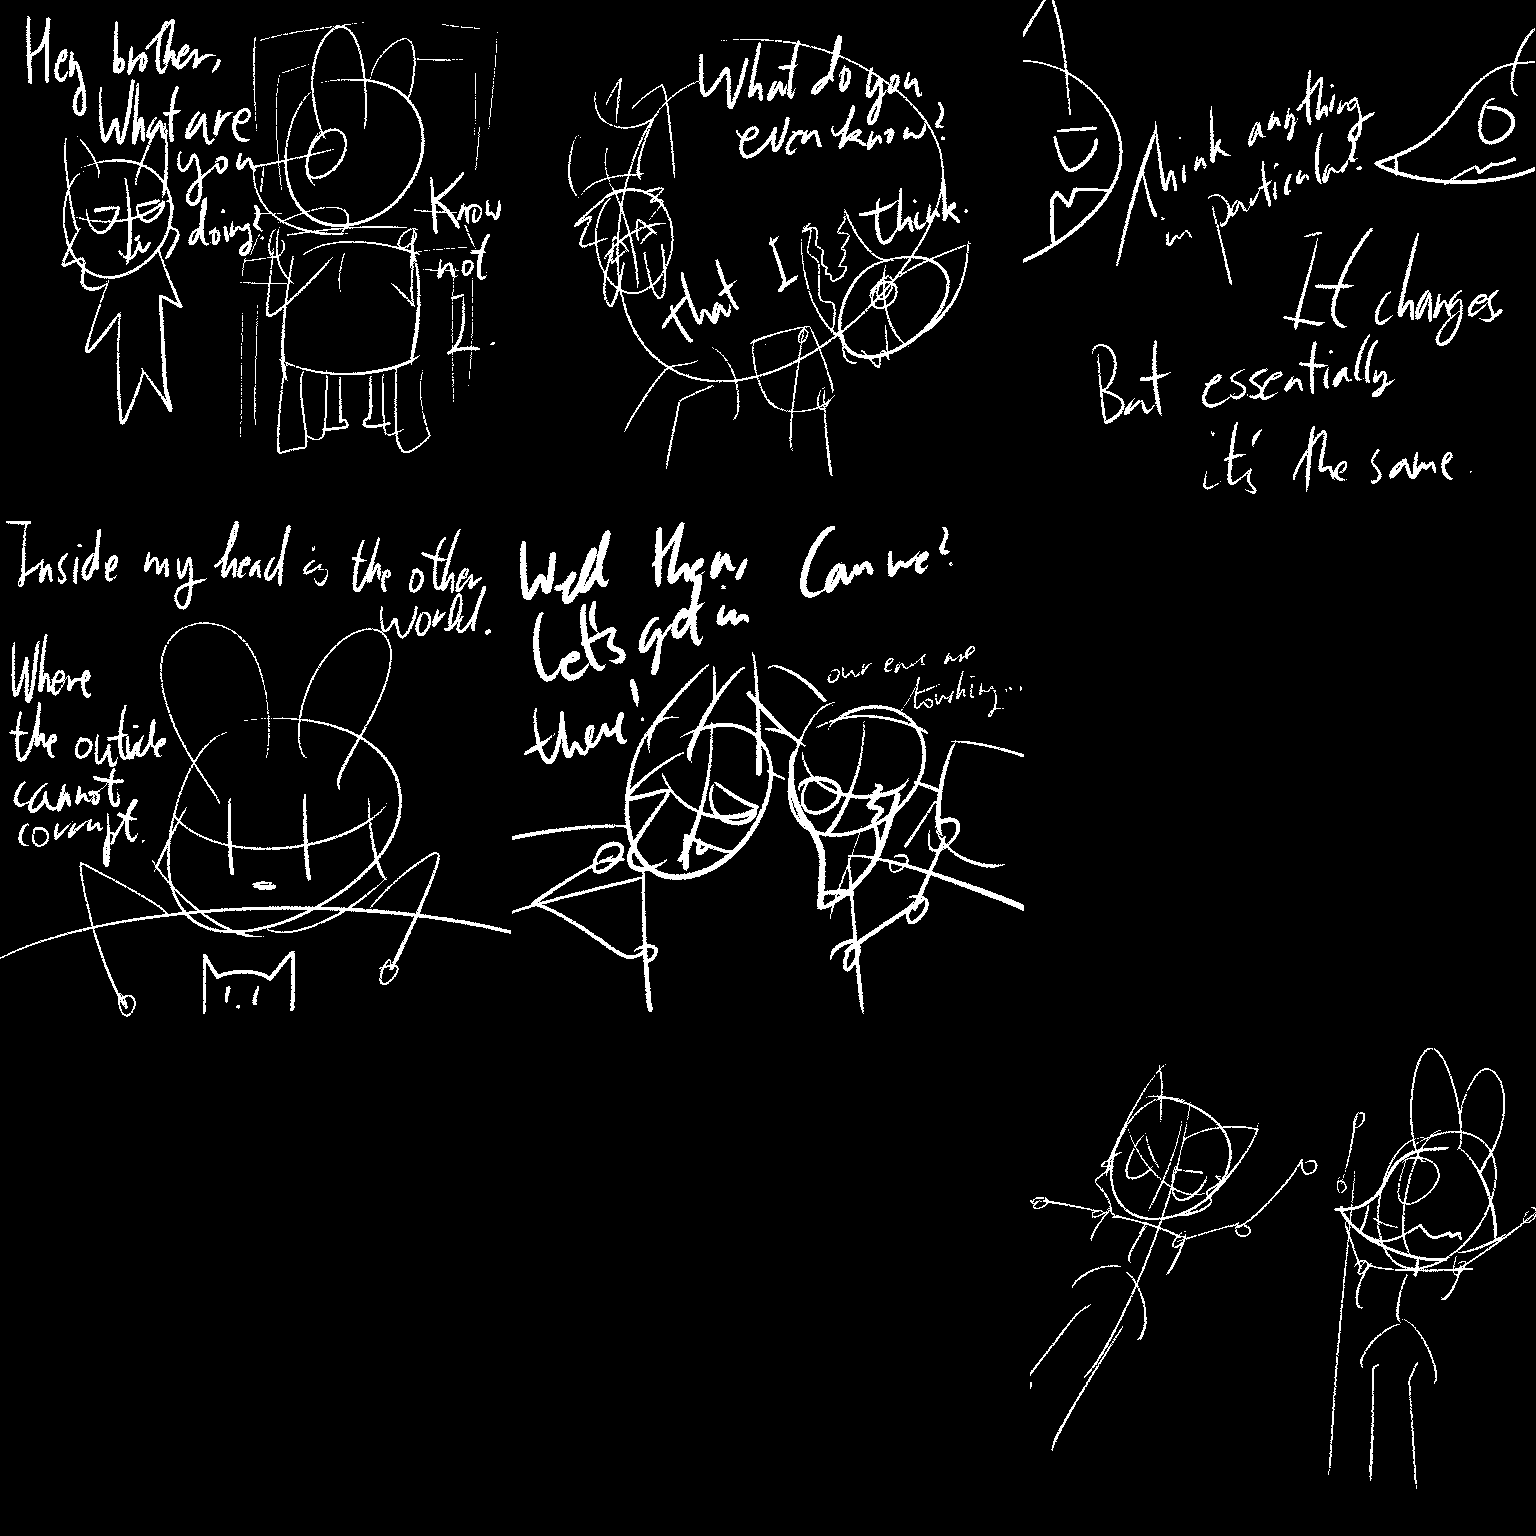 Hey brother,
What are
you
doing?
Know
not
I.
What do you
even know?
that I think.
Think anything
in particular?
It changes
But essentially
it's the same.
Inside my head is the other
world.
Where
the outside
cannot
corrupt.
Well then,
Let's get in
there!
Can we?
our ears are
touching...